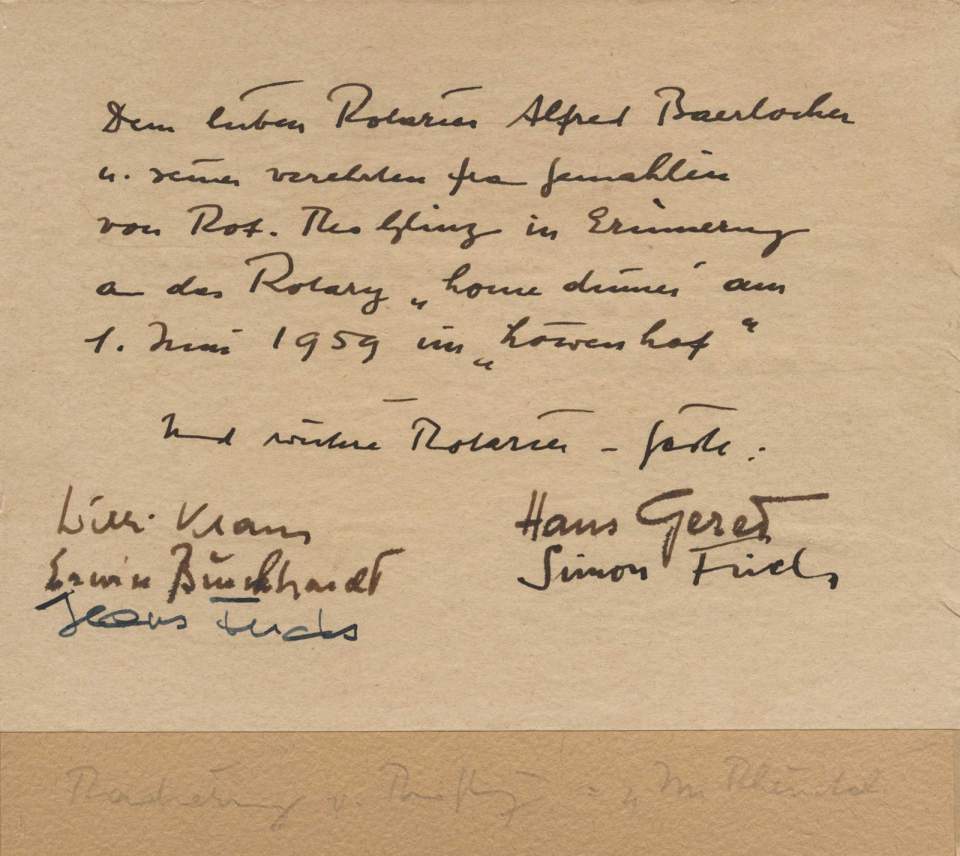 Dem lieben Rotarier Alfred Baerlocher
u. seiner verehrten Frau Gemahlin
von Rot. Theo Glinz in Erinnerung
an das Rotary „home dinner" am
1. Juni 1959 im „Löwenhof"
Und weitere Rotarier - Gäste:
Willi Kraus Hans Geret
Erwin Burkhardt Simon Frick
Hans Fuchs
Radierung v. Theo Glinz = „Im Rheintal